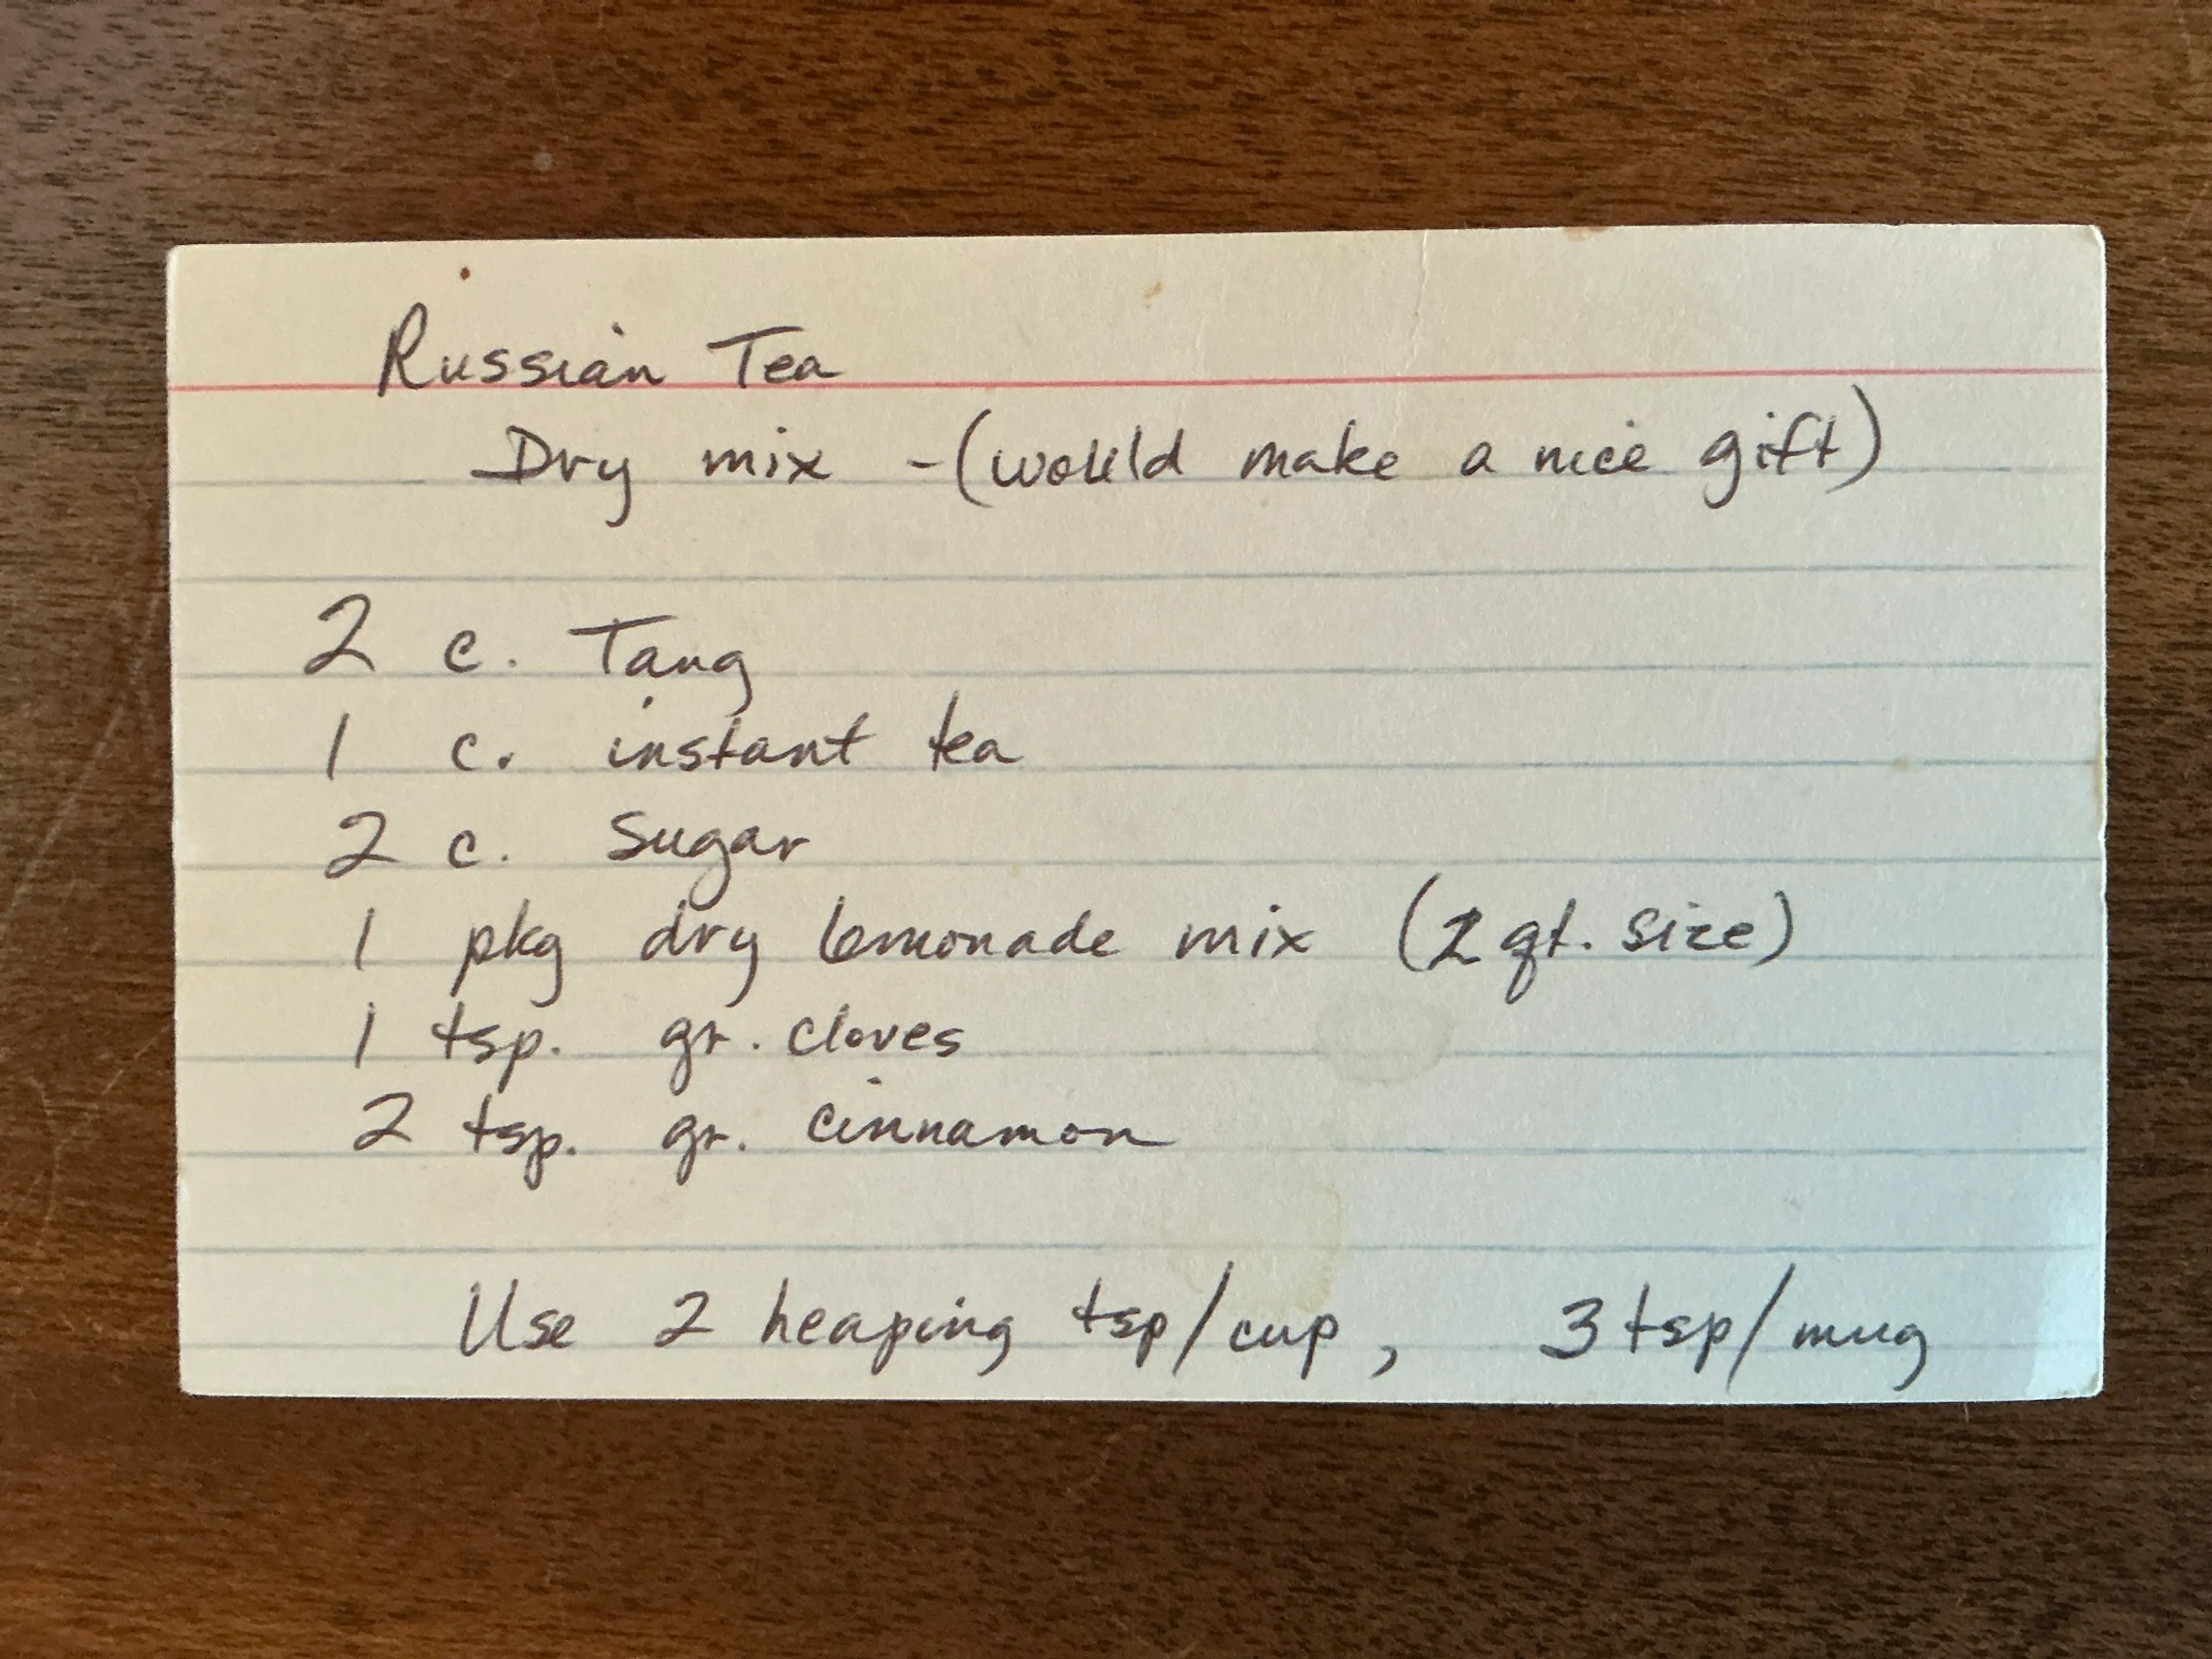 Russian Tea
Dry mix - (would make a nice gift)
2 c. Tang
1 c. instant tea
2 c. Sugar
1 pkg dry lemonade mix (2 qt. size)
1 tsp. gr. cloves
2 tsp. gr. cinnamon
Use 2 heaping tsp/cup, 3 tsp/mug